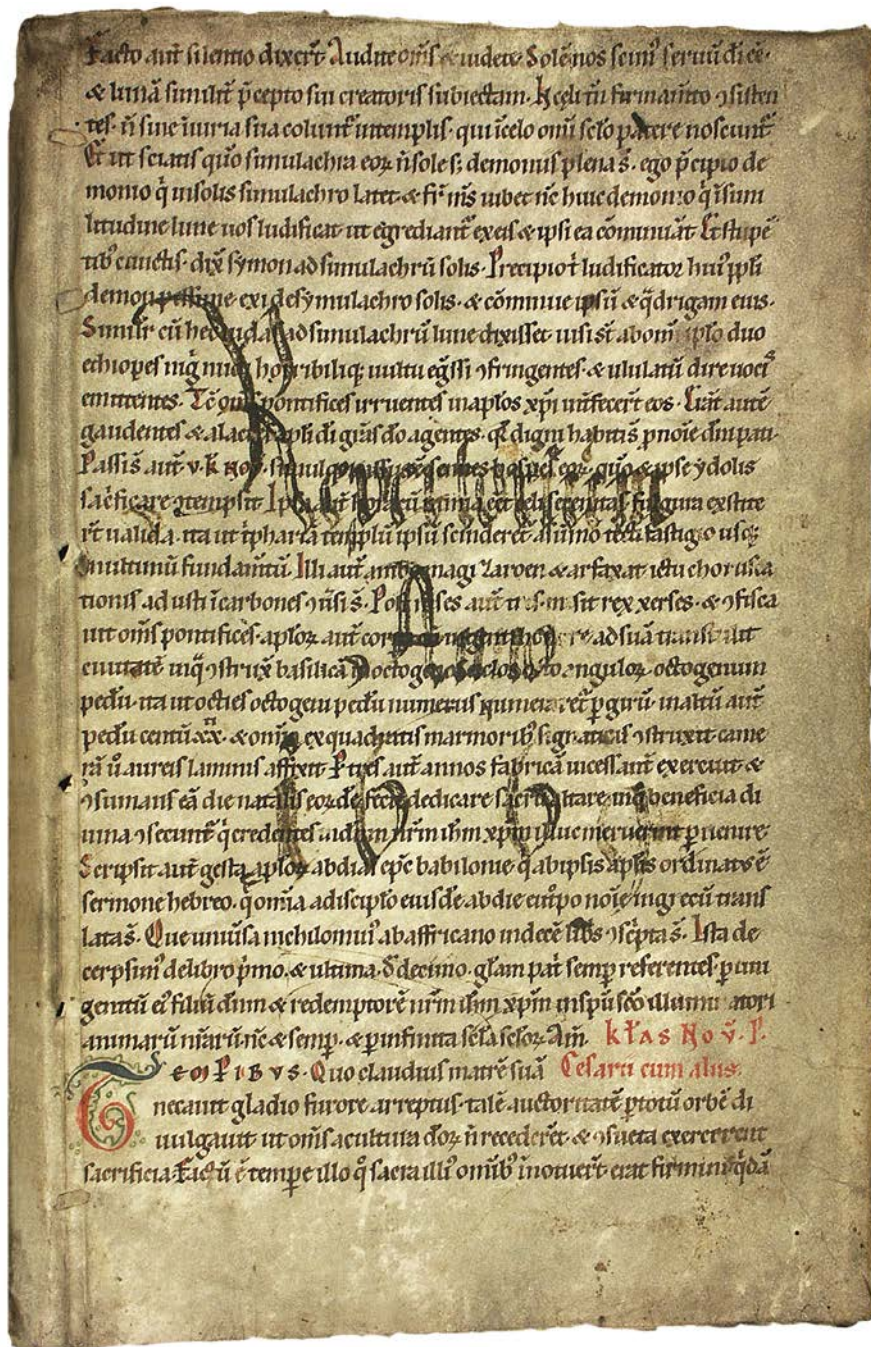 Facto aut̄ silentio dixer̄t. Audite om̄s & uidete. Solē nos scim᷒ seruū dī eē.
& lunā similit̄ p̄cepto sui creatoris subiectam. H celi tn̄ firmam̄to ɔsisten
tes. n̄ sine iniuria sua colunt᷑ in templis. qui ī celo om̄i sc̄lo patere noscunt᷑.
Et ut sciatis quō simulachra eoꝝ n̄ sole sꝫ demoniis plena s̄. ego p̄cipio de
monio q̇ in solis simulachro latet. & fr̄ m̄s iubet nc̄ huic demonio q̇ ī simi
litudine lune uos ludificat. ut egrediant᷑ ex eis & ipsi ea cōminuāt. Et stupē
tib᷒ cunctis. dix̄ symon ad simulachrū solis. Precipio t̄ ludificator hui᷒ ppl̄i
demon pessime. exi de symulachro solis. & cōminue ipsū & q̄drigam eius.
Similir̄ cū hec iudas ad simulachrū lune dixisset. uisi st̄ ab om̄i ppl̄o duo
ethiopes nigri nudi horribiliq; uultu eḡssi ɔfringentes. & ululatū dire uocis
emittentes. Tc̄ om̄s pontifices irruentes in apl̄os xp̄i int̄fecer̄t eos. Erāt autē
gaudentes & alacres apl̄i dī gr̄as dō agentes. qd̄ digni habiti s̄ p noīe dn̄i pati.
Passi s̄ aut̄ v. k̄ Nou. simulq;
sac̄ficare ɔtempsit. Ipsa aut̄ hora fulgura exstite
r̄t ualida. ita ut ip̄hariā templū ipsū scinderet᷑ a sūmo tecti fastigio usq;
in ultimū fundam̄tū. Illi aut̄ ambo magi zaroen & arfaxat. ictu chorusca
tionis adusti ī carbones ɔu̇si s̄. Post m̄ses aut̄ tres misit rex xerses. & ɔfisca
uit om̄s pontifices. apl̄oꝝ aut̄ corpora ad suā transtulit
ciuitatē. in q̄ ɔstrux̄ basilicā octo anguloꝝ. octogenum
pedū. ita ut octies octogeni pedū numerus numeraret᷑ p girū. in altū aut̄
pedū centū xx. & om̄ia ex quadratis marmorib᷒ ɔstruxit. came
rā u̇o aureis laminis affixit. P tres aut̄ annos fabricā incessant̄ exercuit. &
ɔsumans eā die natalis eoꝝdē fecit dedicare sacrū altare. in q̄ beneficia di
uina ɔsecunt᷑ q̇ credentes in dn̄m nr̄m ih̄m xp̄m illuc meruerint puenire.
Scripsit aut̄ gesta apl̄oꝝ abdias ep̄c babilonie. q̇ ab ipsis apl̄is ordinatus ē
sermone hebreo. q̄ om̄ia a discipl̄o eiusdē abdie eutropo noīe in grecū trans
lata s̄. Que uniu̇sa nichilomin᷒ ab affricano in decē lib̄s ɔsc̄pta s̄. Ista de
cerpsim᷒ de libro p̄mo. & ultima d̄ decimo. gl̄am pat̄i semp referentes. p uni
genitū ei᷒ filiū dn̄m & redemptorē nr̄m ih̄m xp̄m in sp̄u sc̄o illuminatori
animarū nr̄arū. nc̄ & semp. & p infinita sc̄la sc̄loꝝ. Am̄. kl̄as Nov̄. P.
TEMPIBVS. Quo claudius matrē suā Cesarii cum aliis.
necauit gladio furore arreptus. talē auctoritatē p totū orbē di
uulgauit. ut om̄s a cultura doꝝ n̄ recederēt. & ɔsueta exercerent
sacrificia. Factū ē tempe illo q̄ sacra illi᷒ om̄ib᷒ īnotuer̄t. erat firminus q̇dā